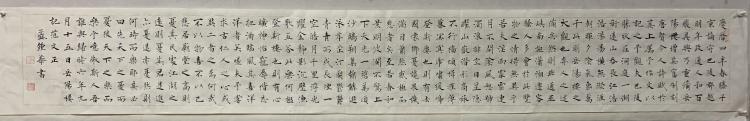 慶曆四年春滕子
京謫守巴陵郡越
明年政通人和百
廢具興乃重修岳
陽樓增其舊制刻
唐賢今人詩賦於
其上屬予作文以
記之予觀夫巴陵
勝狀在洞庭一湖
銜遠山吞長江浩
浩湯湯橫無際涯
朝暉夕陰氣象萬
千此則岳陽樓之
大觀也前人之述
備矣然則北通巫
峽南極瀟湘遷客
騷人多會於此覽
物之情得無異乎
若夫霪雨霏霏連
月不開陰風怒號
濁浪排空日星隱
曜山岳潛形商旅
不行檣傾楫摧薄
暮冥冥虎嘯猿啼
登斯樓也則有去
國懷鄉憂讒畏譏
滿目蕭然感極而
悲者矣至若春和
景明波瀾不驚上
下天光一碧萬頃
沙鷗翔集錦鱗游
泳岸芷汀蘭郁郁
青青而或長煙一
空皓月千里浮光
耀金靜影沉璧漁
歌互答此樂何極
登斯樓也則有心
曠神怡寵辱偕忘
把酒臨風其喜洋
洋者矣嗟夫予嘗
求古仁人之心或
異二者之為何哉
不以物喜不以己
悲居廟堂之高則
憂其民處江湖之
遠則憂其君是進
亦憂退亦憂然則
何時而樂耶其必
曰先天下之憂而
憂後天下之樂而
樂乎噫微斯人吾
誰與歸時六年九
月十五日岳陽樓
記范文正
書